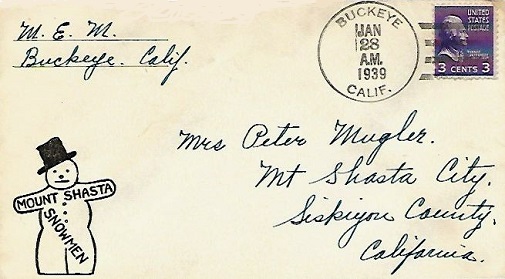 M. E. M.
Buckeye. Calif.
BUCKEYE
JAN
28
A.M.
1939
CALIF.
UNITED
STATES
POSTAGE
3 CENTS 3
Mrs Peter Mugler.
Mt Shasta City.
Siskiyou County.
California.
MOUNT SHASTA
SNOWMEN